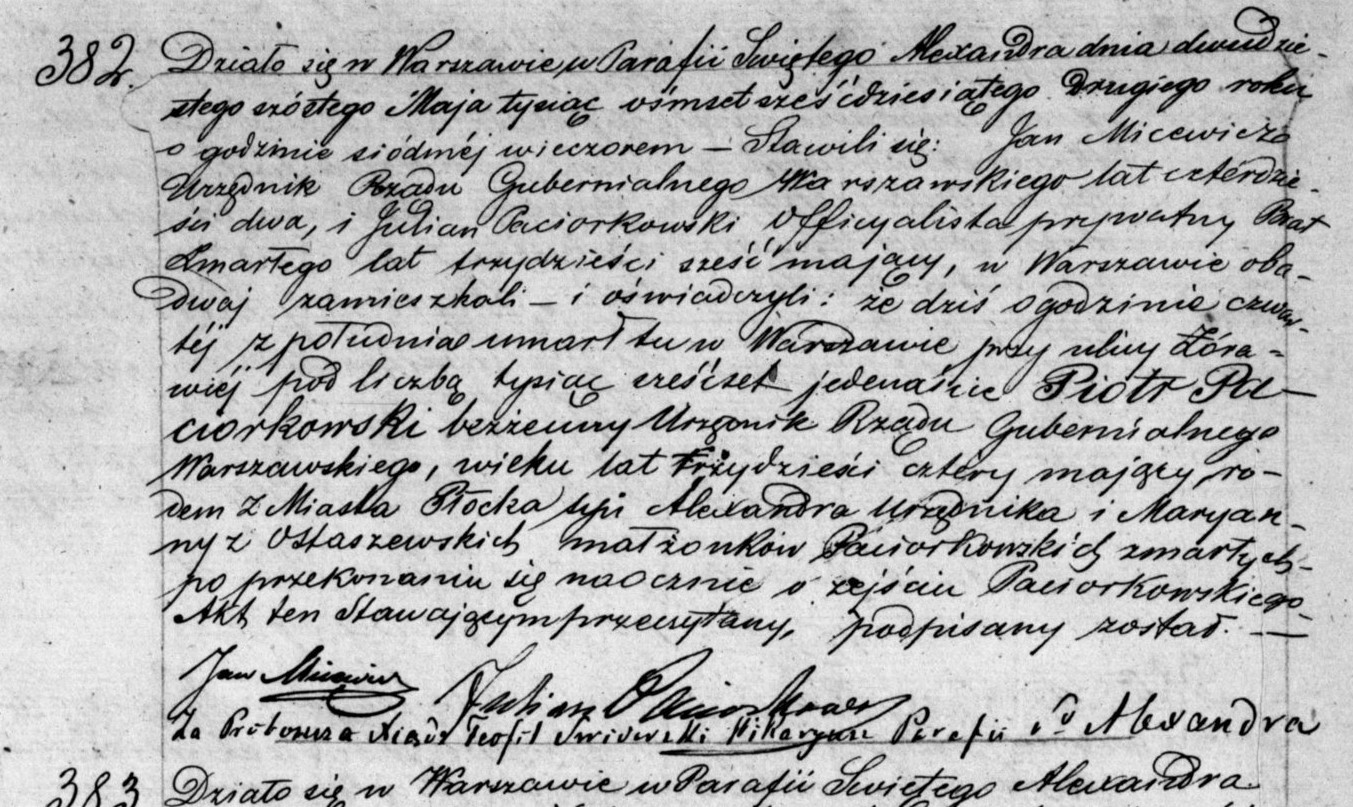 382. Działo się w Warszawie, w Parafii Swiętego Alexandra dnia dwudzie-
stego szóstego Maja tysiąc ośmset sześćdziesiątego drugiego roku
o godzinie siódméj wieczorem – Stawili się: Jan Micewicz
Urzędnik Rządu Gubernialnego Warszawskiego lat czterdzie-
ści dwa, i Julian Paciorkowski Officyalista prywatny Brat
Zmarłego lat trzydzieści sześć mający, w Warszawie oba-
dwaj zamieszkali – i oświadczyli: że dziś o godzinie czwar-
téj z południa umarł tu w Warszawie przy ulicy Żóra-
wiéj pod liczbą tysiąc sześćset jedenaście Piotr Pa-
ciorkowski bezżenny Urzędnik Rządu Gubernialnego
Warszawskiego, wieku lat trzydzieści cztery mający, ro-
dem z Miasta Płocka syn Alexandra Urzędnika i Maryan-
ny z Ostaszewskich małżonków Paciorkowskich zmarłych –
po przekonaniu się naocznie o zejściu Paciorkowskiego
Akt ten Stawającym przeczytany, podpisany został. —
Jan Micewicz Julian Paciorkowski
Za Proboszcza Xiądz Teofil Wikaryusz Parafii Sgo Alexandra
383 Działo się w Warszawie w Parafii Swiętego Alexandra